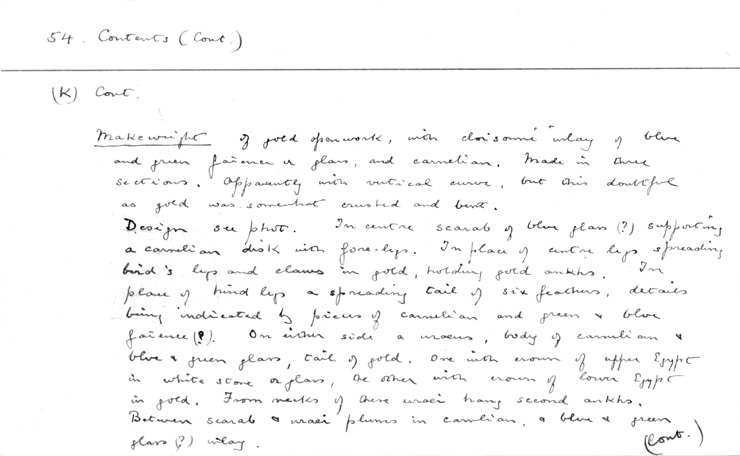 54. Contents (Cont.)
(K) Cont.
Makeweight of gold openwork, with cloisonné inlay of blue
and green faience or glass, and carnelian. Made in three
sections. Apparently with vertical curve, but this doubtful
as gold was somewhat crushed and bent.
Design see phot. In centre scarab of blue glass (?) supporting
a carnelian disk with fore-legs. In place of centre legs spreading
bird's legs and claws in gold, holding gold ankhs. In
place of hind legs a spreading tail of six feathers, details
being indicated by pieces of carnelian and green & blue
faience (?). On either side a uraeus, body of carnelian &
blue & green glass, tail of gold. One with crown of upper Egypt
in white stone or glass, the other with crown of lower Egypt
in gold. From necks of these uraei hang second ankhs.
Between scarab & uraei plums in carnlian, & blue & green
glass (?) inlay.
(Cont.)